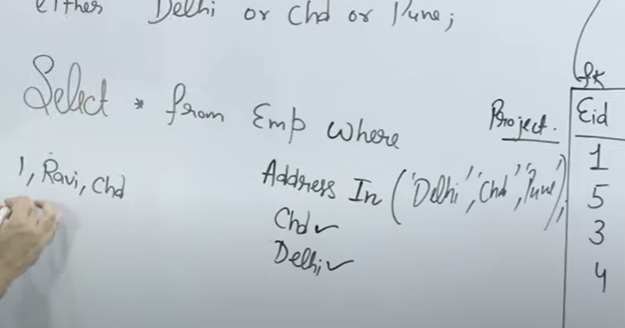 either Delhi or Chd or Pune;
Select * from Emp where
Address In ('Delhi','Chd','Pune');
1, Ravi, Chd
Chd ✓
Delhi ✓
Project.
fk
Eid
1
5
3
4